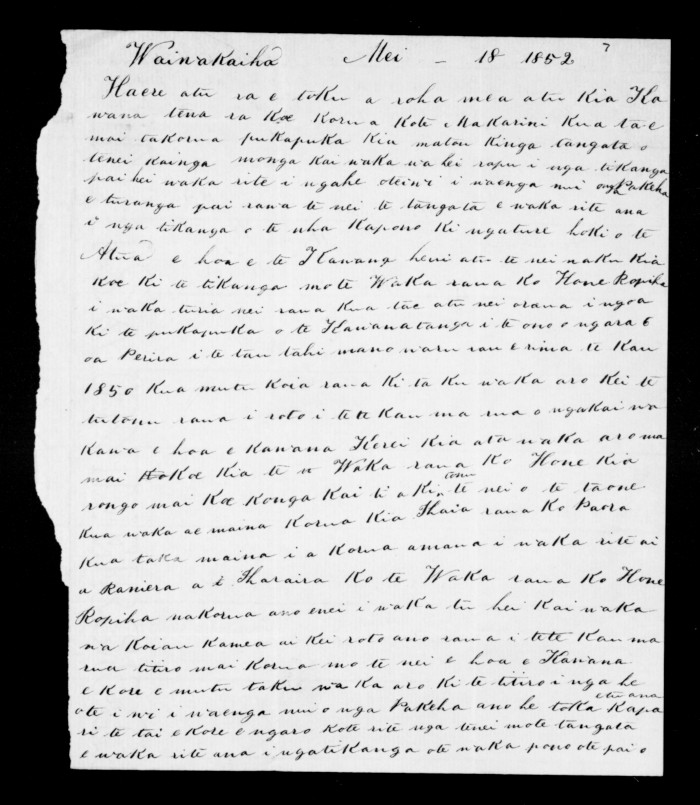 Waiwakaiha Mei - 18 1852 7
Haere atu ra e toku a roha mea atu Kia Ka
wana tena ra Koe Korua Kote Makarini Kua tae
mai takorua pukapuka Kia matou Kinga tangata o
tenei Kainga monga Kai waka wa hei rapu i nga tikanga
pai hei waka rite i ngahe oteiwi i waenga nui onga Pakeha
e turanga pai rawa te nei te tangata e waka rite ana
i nga tikanga o te nha Kapono Ki ngature hoki o te
Atua e hoa e te Kawana heui atu te nei naku Kia
Koe Ki te tikanga mote Waka raua Ko Hone Ropiha
i waka turia nei raua Kua tae atu nei oraua ingoa
Ki te pukapuka o te Kawanatanga i te ono o ngara 6
oa Perira i te tau tahi mano waru rau e rima te Kau
1850 Kua mutu Koia raua Ki ta Ku waka aro Kei te
tutonu raua i roto i te te Kau ma rua o ngakai wa
Kawa e hoa e Kawana Kerei Kia ata waka aro ma
mai Koe Kia te Waka raua Ko Hone Kia
rongo mai Koe Konga Kai ti a Ki tonu te nei o te taone
Kua waka ae maina Korua Kia Ihaia raua Ko Paora
Kua taka maina i a Korua amana i waka rite ai
a Raniera a i Iharaira Ko te Waka raua Ko Hone
Ropiha nakorua ano enei i waka tu hei Kai waka
wa Koiau Kamea ai Kei roto ano raua i te te Kau ma
rua titiro mai Korua mo te nei e hoa e Kawana
e Kore e mutu taku wa Ka aro Ki te titiro i nga he
ote i wi i waenga nui o nga Pakeha ano he toka etu ana Kapa
ri te tai e Kore e ngaro Kote rite nga tenei mote tangata
e waka rite ana i ngatikanga ote waka pono ote pai o